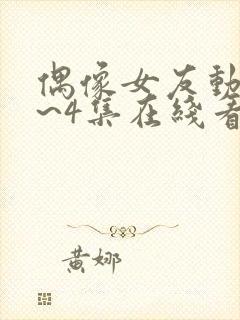 偶像女友動
~4集在綫看
黄娜